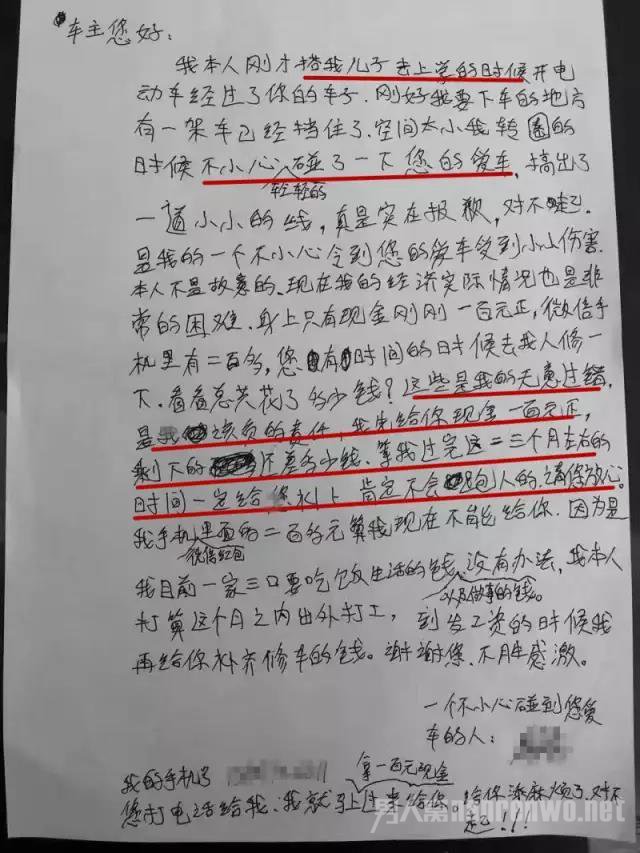 车主您好：
我本人刚才搭我儿子去上学的时候开电
动车经过了你的车子．刚好我要下车的地方
有一架车已经挡住了．空间太小我转圈的
时候不小心轻轻的碰了一下您的爱车，搞出了
一道小小的线，真是实在报歉，对不起．
是我的一个不小心令到您的爱车受到小小伤害．
本人不是故意的、现在我的经济实际情况也是非
常的困难．身上只有现金刚刚一百元正，微信手
机里有二百多，您有时间的时候去找人修一
下．看看总共花了多少钱？这些是我的无意过错，
是我该负的责任，我先给你现金一百元正，
剩下的还差多少钱、等我过完这二三个月左右的
时间一定给您补上 肯定不会跑人的．请你放心．
我手机里面微信红包的二百多元算我现在不能给你．因为是
我目前一家三口要吃饭生活的钱以及做事的钱。没有办法，我本人
打算这个月之内出外打工，到发工资的时候我
再给你补齐修车的钱。谢谢您．不胜感激。
一个不小心碰到您爱
车的人：
我的手机号
您打电话给我．我就马上拿一百元现金过来给你．给你添麻烦了．对不
起！！！
男人窝nanrenwo.net